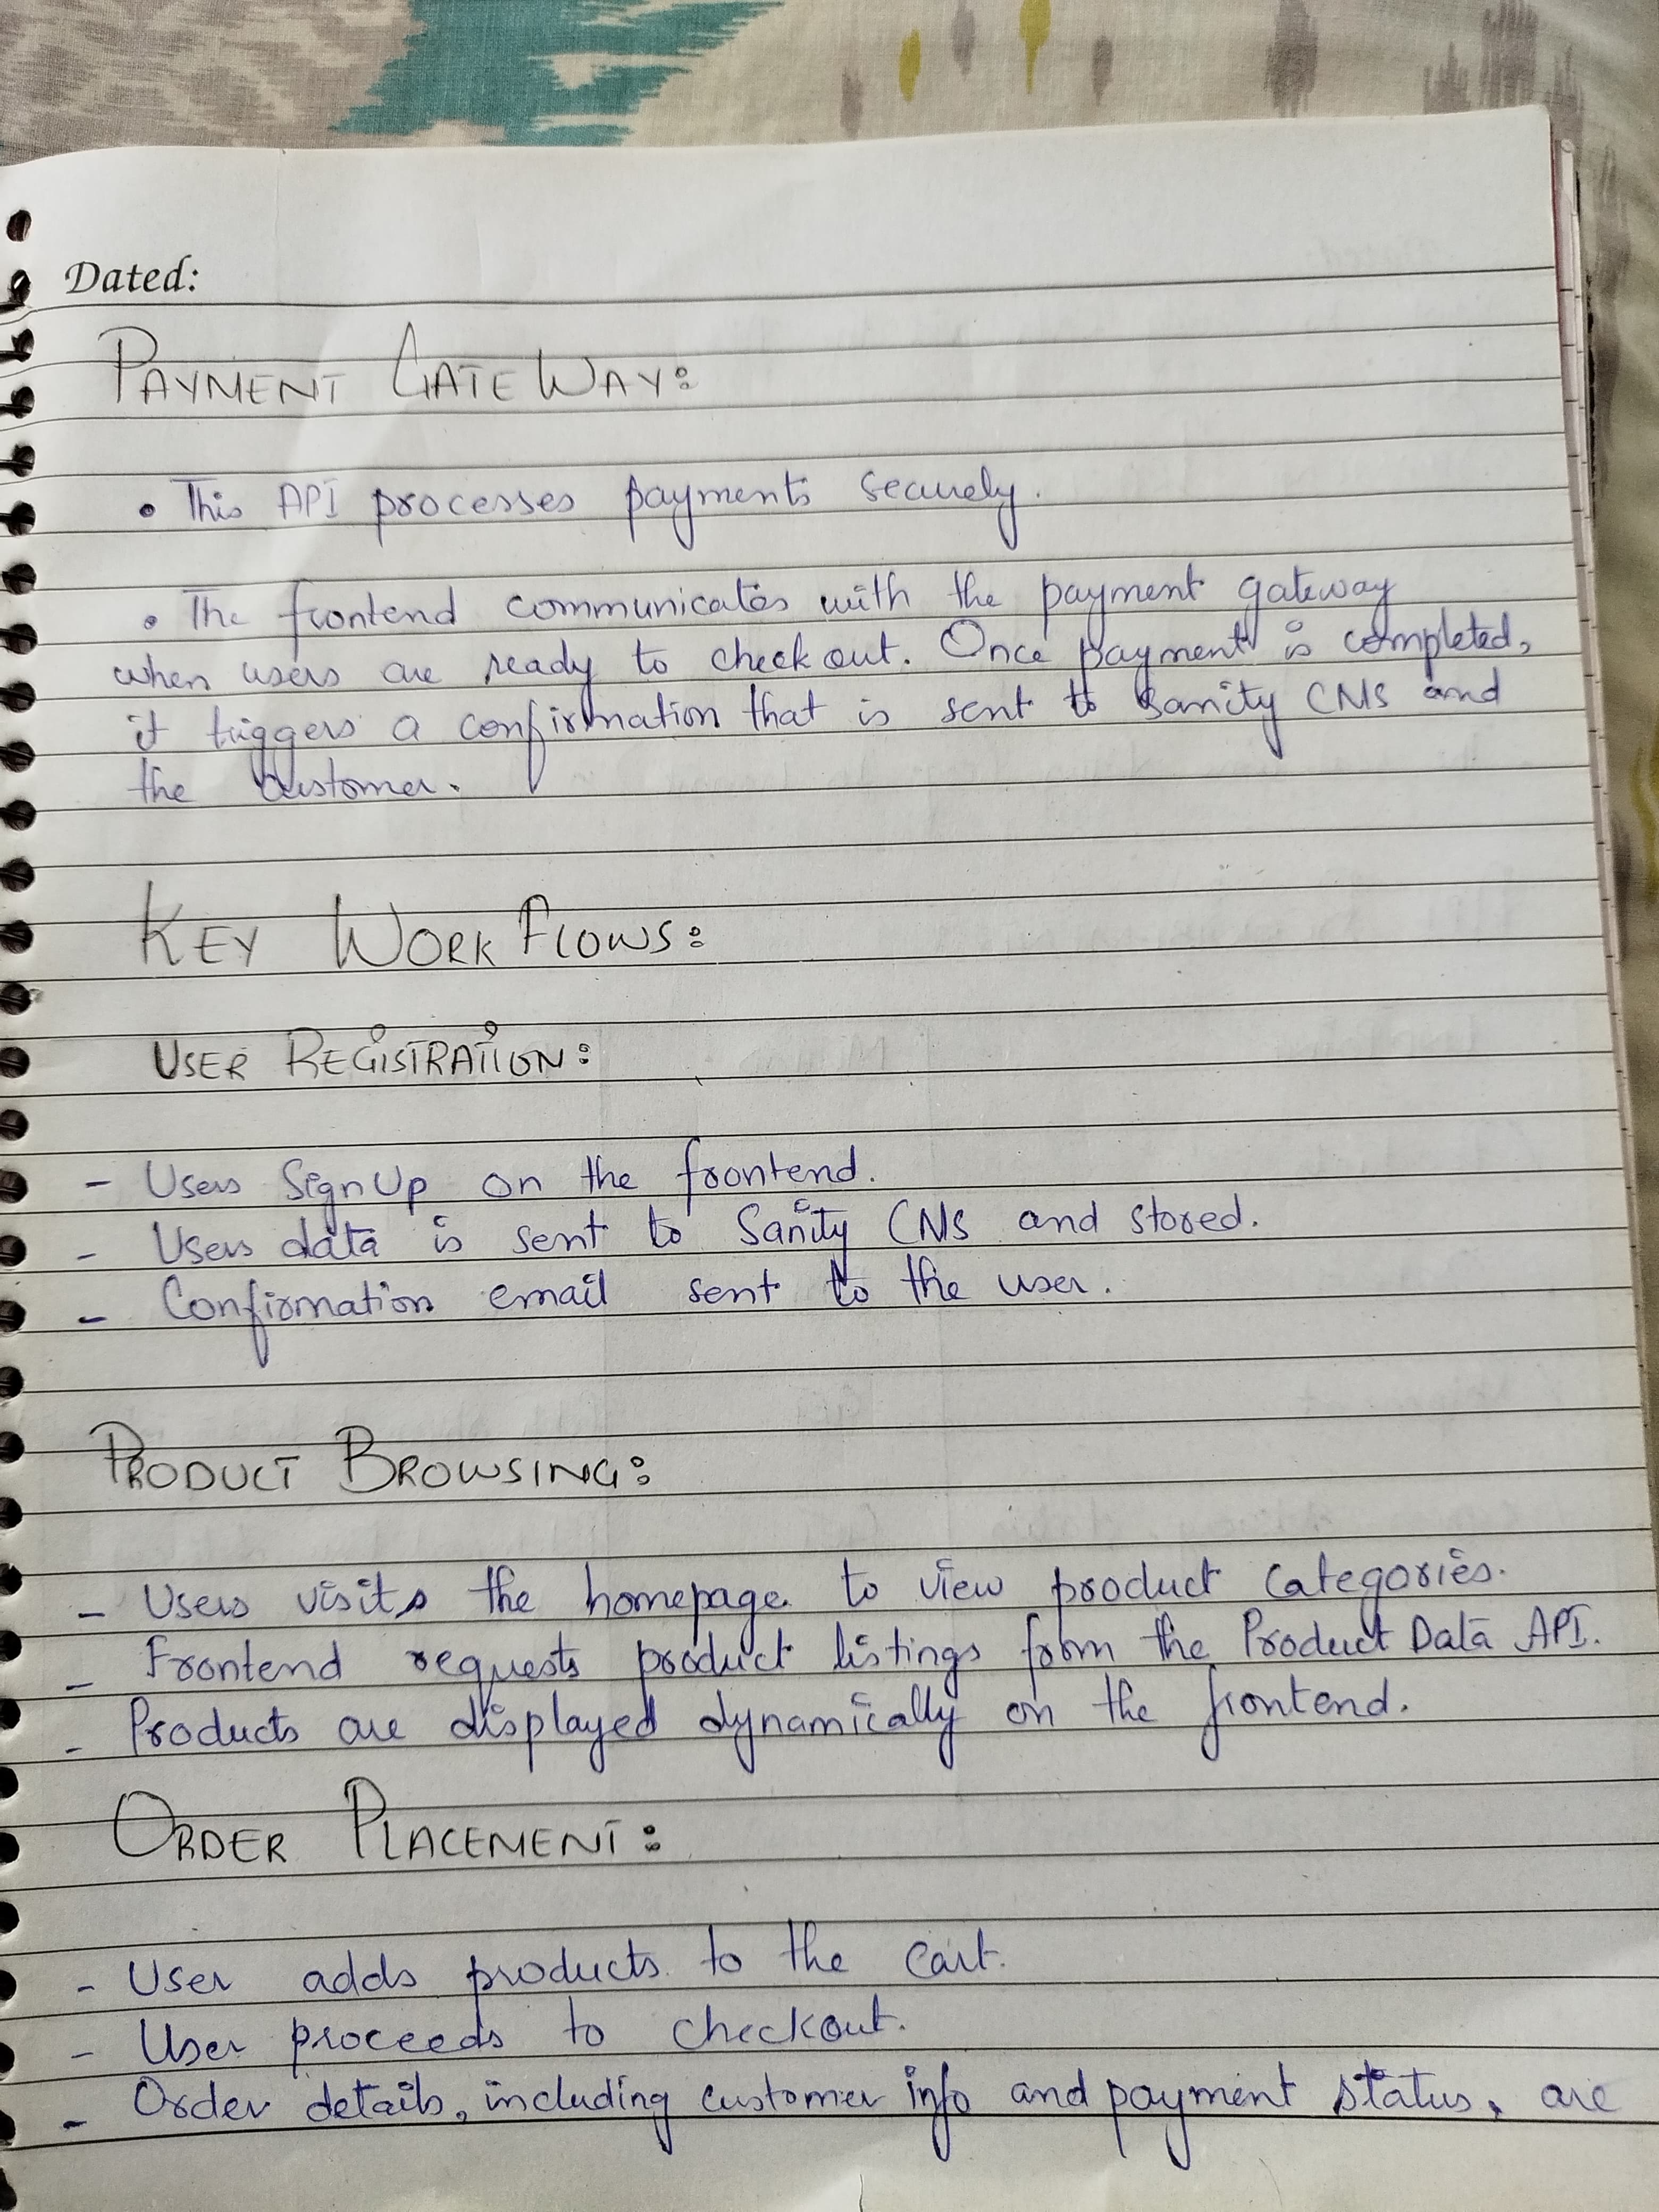 Dated:
PAYMENT GATE WAY:
• This API processes payments securely.
• The frontend communicates with the payment gateway
when users are ready to check out. Once payment is completed,
it triggers a confirmation that is sent to Sanity CMS and
the customer.
KEY WORK FLOWS:
USER REGISTRATION:
- Users SignUp on the frontend.
- Users data is sent to Sanity CMS and stored.
- Confirmation email sent to the user.
PRODUCT BROWSING:
- Users visits the homepage to view product categories.
- Frontend requests product listings from the Product Data API.
- Products are displayed dynamically on the frontend.
ORDER PLACEMENT:
- User adds products to the cart.
- User proceeds to checkout.
- Order details, including customer info and payment status, are